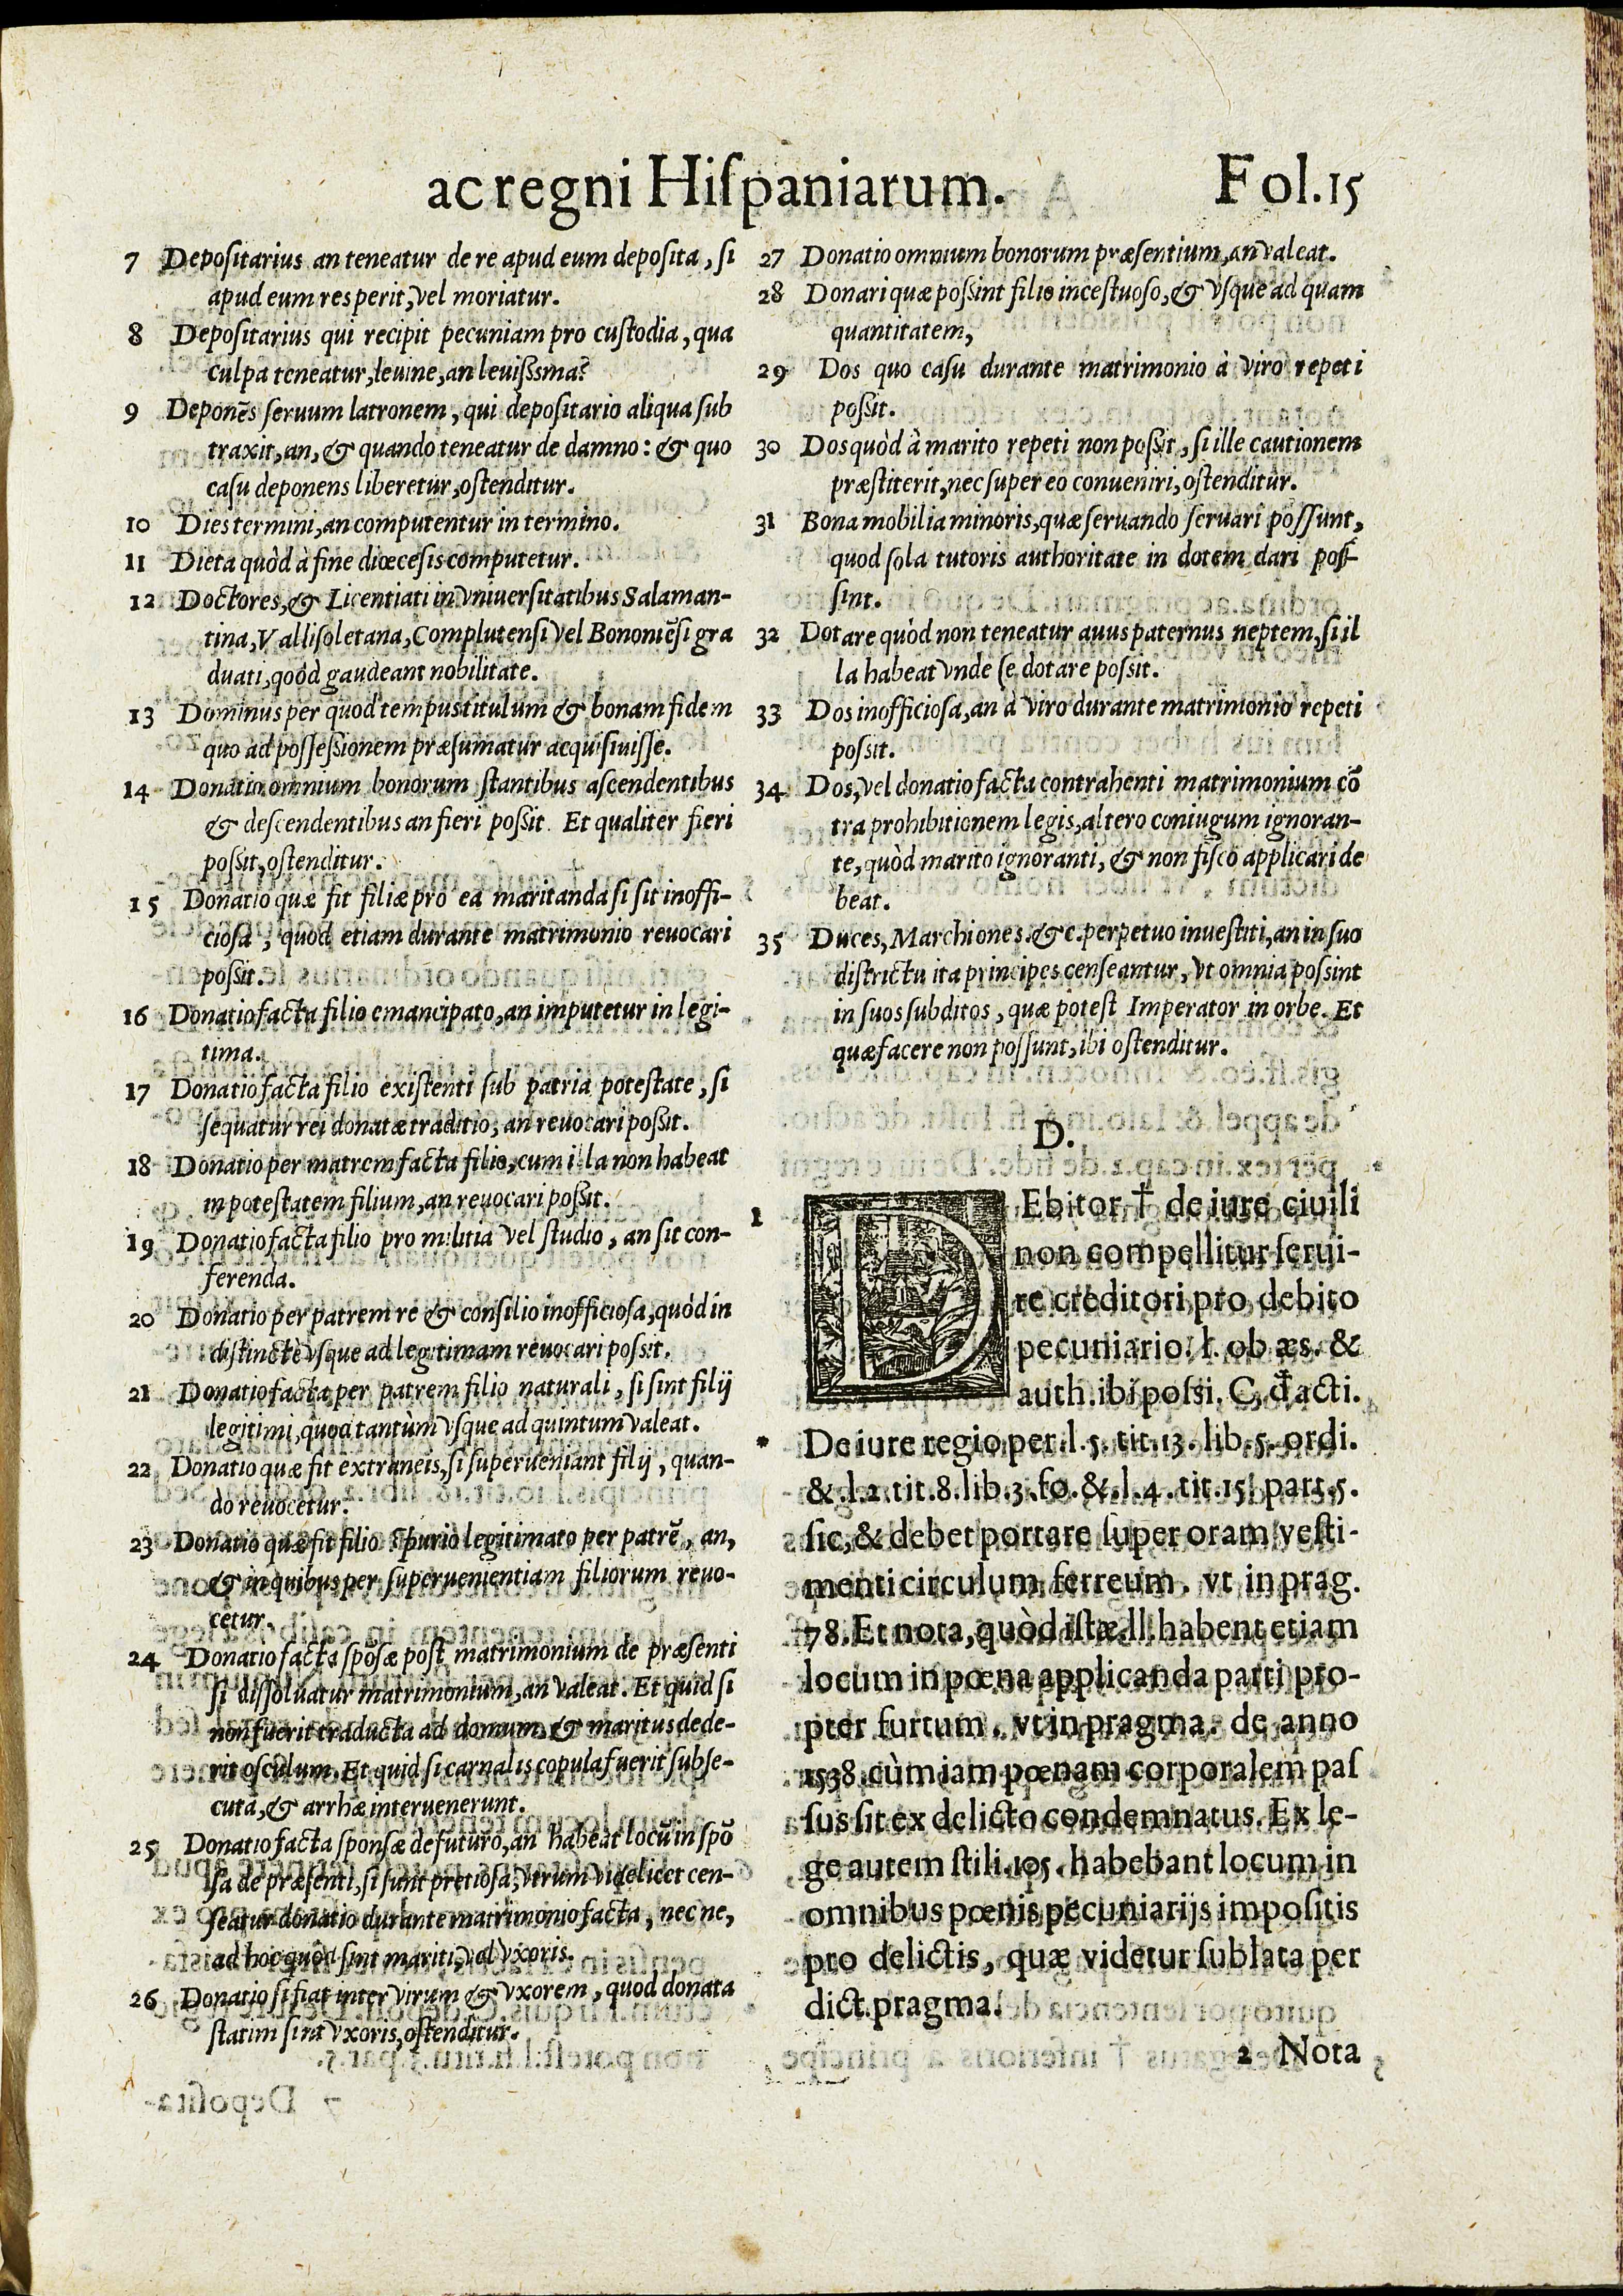 ac regni Hiſpaniarum. Fol.15
7 Depoſitarius an teneatur de re apud eum depoſita, ſi
apud eum res perit, vel moriatur.
8 Depoſitarius qui recipit pecuniam pro cuſtodia, qua
culpa teneatur, leuine, an leuiſsſma?
9 Deponẽs ſeruum latronem, qui depoſitario aliqua ſub
traxit, an, & quando teneatur de damno: & quo
caſu deponens liberetur, oſtenditur.
10 Dies termini, an computentur in termino.
11 Dieta quòd à fine diœceſis computetur.
12 Doctores, & Licentiati in vniuerſitatibus Salaman-
tina, Valliſoletana, Complutenſi vel Bononiẽſi gra
duati, qoòd gaudeant nobilitate.
13 Dominus per quod tempus titulum & bonam fidem
quo ad poſſeſsionem præſumatur acquiſiuiſſe.
14 Donatio omnium bonorum ſtantibus aſcendentibus
& deſcendentibus an fieri poſsit. Et qualiter fieri
poſsit, oſtenditur.
15 Donatio quæ fit filiæ pro ea maritanda ſi ſit inoffi-
cioſa, quod etiam durante matrimonio reuocari
poſsit.
16 Donatio facta filio emancipato, an imputetur in legi-
tima.
17 Donatio facta filio exiſtenti ſub patria poteſtate, ſi
ſequatur rei donatæ traditio, an reuocari poſsit.
18 Donatio per matrem facta filio, cum illa non habeat
in poteſtatem filium, an reuocari poſsit.
19 Donatio facta filio pro militia vel ſtudio, an ſit con-
ferenda.
20 Donatio per patrem re & conſilio inofficioſa, quòd in
diſtinctè vſque ad legitimam reuocari poſsit.
21 Donatio facta per patrem filio naturali, ſi ſint filij
legitimi, quod tantùm vſque ad quintum valeat.
22 Donatio quæ fit extraneis, ſi ſuperueniant filij, quan-
do reuocetur.
23 Donatio quæ fit filio ſpurio legitimato per patrẽ, an,
& in quibus per ſuperuenientiam filiorum reuo-
cetur.
24 Donatio facta ſpõſæ poſt matrimonium de præſenti
ſi diſſoluatur matrimonium, an valeat. Et quid ſi
non fuerit traducta ad domum, & maritus dede-
rit oſculum. Et quid ſi carnalis copula fuerit ſubſe-
cuta, & arrhæ interuenerunt.
25 Donatio facta ſponſæ de futuro, an habeat locũ in ſpõ
ſa de præſenti, ſi ſunt pretioſa, vtrum videlicet cen-
ſeatur donatio durante matrimonio facta, nec ne,
ad hoc quòd ſint mariti, vel vxoris.
26 Donatio ſi fiat inter virum & vxorem, quod donata
ſtatim ſint vxoris, oſtenditur.
27 Donatio omnium bonorum præſentium, an valeat.
28 Donari quæ poſsint filio inceſtuoſo, & vſque ad quam
quantitatem,
29 Dos quo caſu durante matrimonio à viro repeti
poſsit.
30 Dos quòd à marito repeti non poſsit, ſi ille cautionem
præſtiterit, nec ſuper eo conueniri, oſtenditur.
31 Bona mobilia minoris, quæ ſeruando ſeruari poſſunt,
quod ſola tutoris authoritate in dotem dari poſ-
ſint.
32 Dotare quòd non teneatur auus paternus neptem, ſi il
la habeat vnde ſe dotare poſsit.
33 Dos inofficioſa, an à viro durante matrimonio repeti
poſsit.
34 Dos, vel donatio facta contrahenti matrimonium cõ
tra prohibitionem legis, altero coniugum ignoran-
te, quòd marito ignoranti, & non fiſco applicari de
beat.
35 Duces, Marchiones. &c. perpetuo inueſtiti, an in ſuo
diſtrictu ita principes cenſeantur, vt omnia poſsint
in ſuos ſubditos, quæ poteſt Imperator in orbe. Et
quæ facere non poſſunt, ibi oſtenditur.
D.
1 DEbitor † de iure ciuili
non compellitur ſerui-
re creditori pro debito
pecuniario. l. ob æs. &
auth. ibi poſsi. C, đ acti.
* De iure regio per. l. 5. tit. 13. lib. 5. ordi.
&. l. 2. tit. 8. lib. 3. fo. &. l. 4. tit. 15. part. 5.
ſic, & debet portare ſuper oram veſti-
menti circulum ferreum. vt in prag.
78. Et nota, quòd iſtæ. ll. habent etiam
locum in pœna applicanda parti pro-
pter furtum. vt in pragma. de anno
1538. cùm iam pœnam corporalem paſ
ſus ſit ex delicto condemnatus. Ex le-
ge autem ſtili. 105. habebant locum in
omnibus pœnis pecuniarijs impoſitis
pro delictis, quæ videtur ſublata per
dict. pragma.
2 Nota